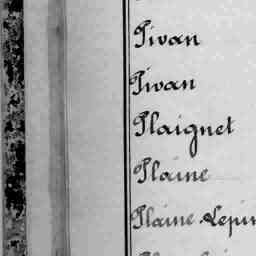 Pivan
Pivan
Plaignet
Plaine
Plaine Lepin